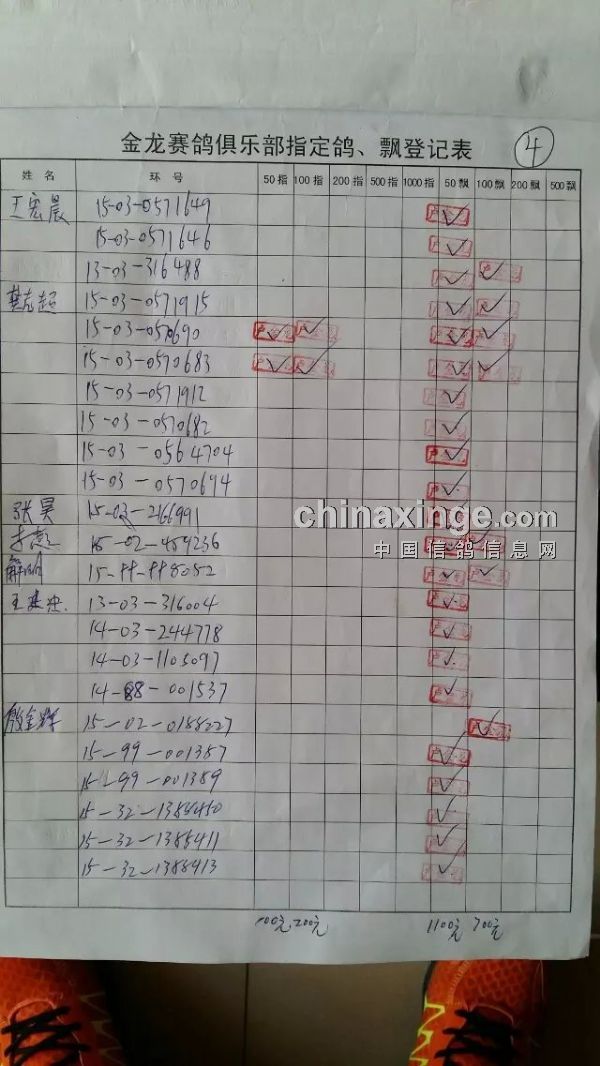 金龙赛鸽俱乐部指定鸽、飘登记表 4
姓名 环号 50指 100指 200指 500指 1000指 50飘 100飘 200飘 500飘
王宏晨 15-03-0571649
15-03-0571646
13-03-316488
15-03-0571915
15-03-0570690
15-03-0570683
15-03-0571912
15-03-0570682
15-03-0564704
15-03-0570694
张昊 15-02-2166991
李 15-02-454236
解明 15-99-998052
王 13-03-316004
14-03-244778
14-03-1105097
14-88-001537
15-02-0188227
15-99-001387
15-99-001389
15-32-1385450
15-32-1385411
15-32-1388913
100元 200元 1100元 700元
chinaxinge.com
中国信鸽信息网